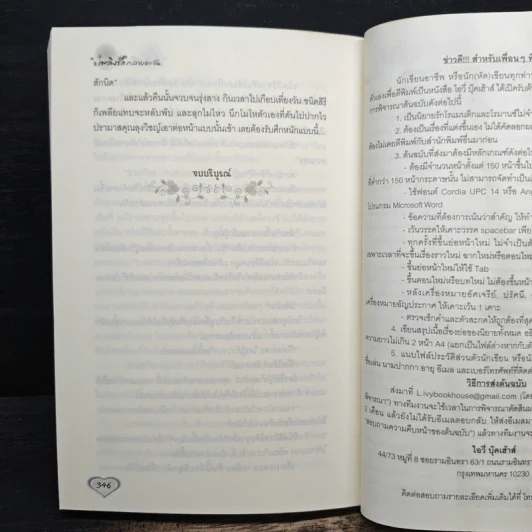 สักนิด"
และแล้วคืนนั้นจวบจนรุ่งสาง กินเวลาไปเกือบเที่ยงวัน ชนิตสิรี
ก็เพลียแทบจะหลับพับ และลุกไม่ไหว นึกโมโหตัวเองที่ดันไปปากไว
ปรามาสคุณลุงวิชญ์เอาต่อหน้าแบบนั้นเข้า เลยต้องรับศึกหนักแบบนี้...
จบบริบูรณ์
346
ข่าวดี!!! สำหรับเพื่อน ๆ
นักเขียนอาชีพ หรือนัก(หัด)เขียนทุกท่าน
ตนเองเพื่อตีพิมพ์เป็นหนังสือ ไอวี่ บุ๊คเฮ้าส์ ได้เปิดรับต้น
การพิจารณาต้นฉบับดังต่อไปนี้
1. เป็นนิยายรักโรแมนติกและโรมานซ์ไม่จำ
2. ต้องเป็นเรื่องที่แต่งขึ้นเอง ไม่ได้คัดลอก
ต้องไม่เคยตีพิมพ์กับสำนักพิมพ์อื่นมาก่อน
3. ต้นฉบับที่ส่งมาต้องมีหลักเกณฑ์ดังต่อไ
- ต้องมีจำนวนหน้าตั้งแต่ 150 หน้า
ที่ต่ำกว่า 150 หน้ากระดาษนั้น ไม่สามารถจัดทำเป็น
- ใช้ฟอนต์ Cordia UPC 14 หรือ Ang
โปรแกรม Microsoft Word
- ข้อความที่ต้องการเน้นว่าสำคัญ ให้ทำ
- เว้นวรรคให้เคาะวรรค spacebar เพีย
- ทุกครั้งที่ขึ้นย่อหน้าใหม่ ไม่จำเป็น
เฉพาะเวลาที่จะขึ้นเรื่องราวใหม่ ฉากใหม่หรือตอนใหม่
- ขึ้นย่อหน้าใหม่ให้ใช้ Tab
- ขึ้นตอนใหม่หรือบทใหม่ ไม่ต้องขึ้นหน้า
- หลังเครื่องหมายอัศเจรีย์, ปรัศนี,
เครื่องหมายอัญประกาศ ให้เคาะเว้น 1 เคาะ
- ตรวจเช็กคำและตัวสะกดให้ถูกต้องที่สุด
4. เขียนสรุปเนื้อเรื่องย่อของนิยายทั้งหมด
ความยาวไม่เกิน 2 หน้า A4 (แยกเป็นไฟล์ต่างหากกับต้
5. แนบไฟล์ประวัติส่วนตัวนักเขียน
ชื่อเล่น นามปากกา อายุ อีเมล และเบอร์โทรศัพท์ที่ติดต่
วิธีการส่งต้นฉบับ
ส่งมาที่ L.ivybookhouse@gmail.com
พิจารณา") ทางทีมงานจะใช้เวลาในการพิจารณาตัดสิน
เดือน แล้วยังไม่ได้รับอีเมลตอบกลับ ให้ส่งอีเมลมา
"สอบถามความคืบหน้าของต้นฉบับ") แล้วทางทีมงานจะ
ไอวี่ บุ๊คเฮ้าส์
44/73 หมู่ที่ 8 ซอยรามอินทรา 63/1 ถนนรามอินทรา
กรุงเทพมหานคร 10230
ติดต่อสอบถามรายละเอียดเพิ่มเติมได้ที่